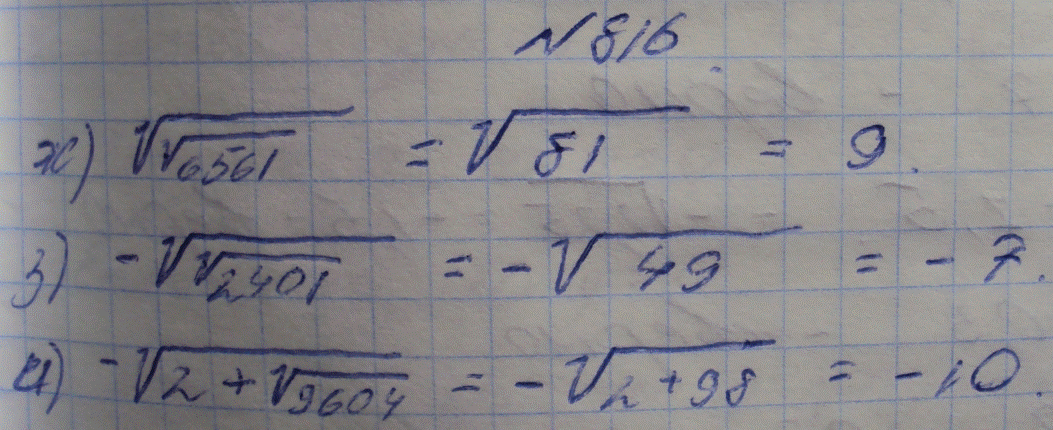 № 816.
ж) √√6561 = √81 = 9.
з) -√√2401 = -√49 = -7.
и) -√2+√9604 = -√2+98 = -10.